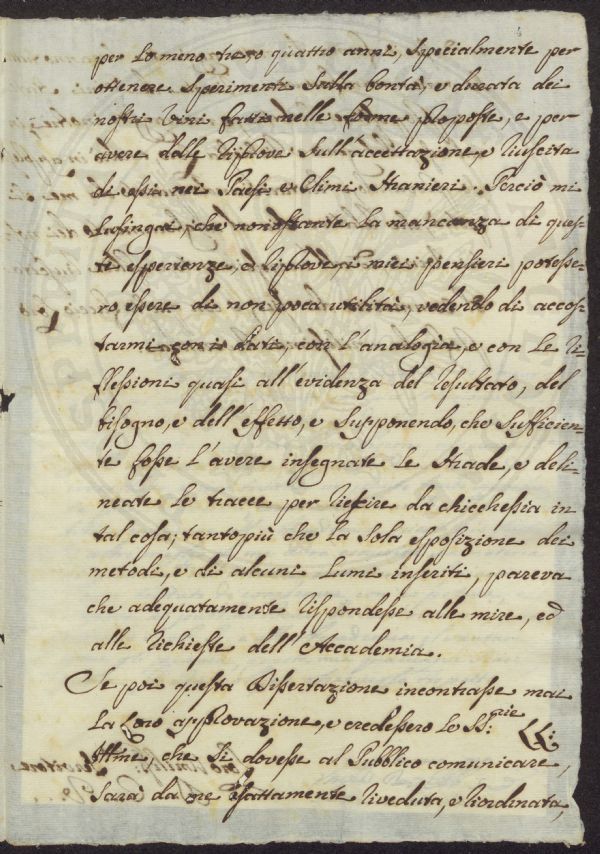 per lo meno tre, o quattro anni, specialmente per
ottenere sperimenti sulla bontà, e durata dei
nostri vini fatti nelle forme proposte, e per
avere delle riprove sull'accettazione, e riuscita
di essi nei Paesi e Climi stranieri. Perciò mi
lusingai, che nonostante la mancanza di ques-
te esperienze, e riprove i miei pensieri potesse-
ro essere di non poca utilità, vedendo di accos-
tarmi con i dati, con l'analogia, e con le ri-
flessioni quasi all'evidenza del resultato, del
bisogno, e dell'effetto, e supponendo, che sufficien-
te fosse l'avere insegnate le strade, e deli-
neate le tracce per riescire da chicchessia in
tal cosa; tanto più che la sola esposizione dei
metodi, e di alcuni lumi inseriti, pareva
che adequatamente rispondesse alle mire, ed
alle richieste dell'Accademia.
Se poi questa Dissertazione incontrasse mai
la loro approvazione, e credessero le SS:rie LL:
Ittme, che si dovesse al Pubblico comunicare,
sarà da me esattamente riveduta, e riordinata,